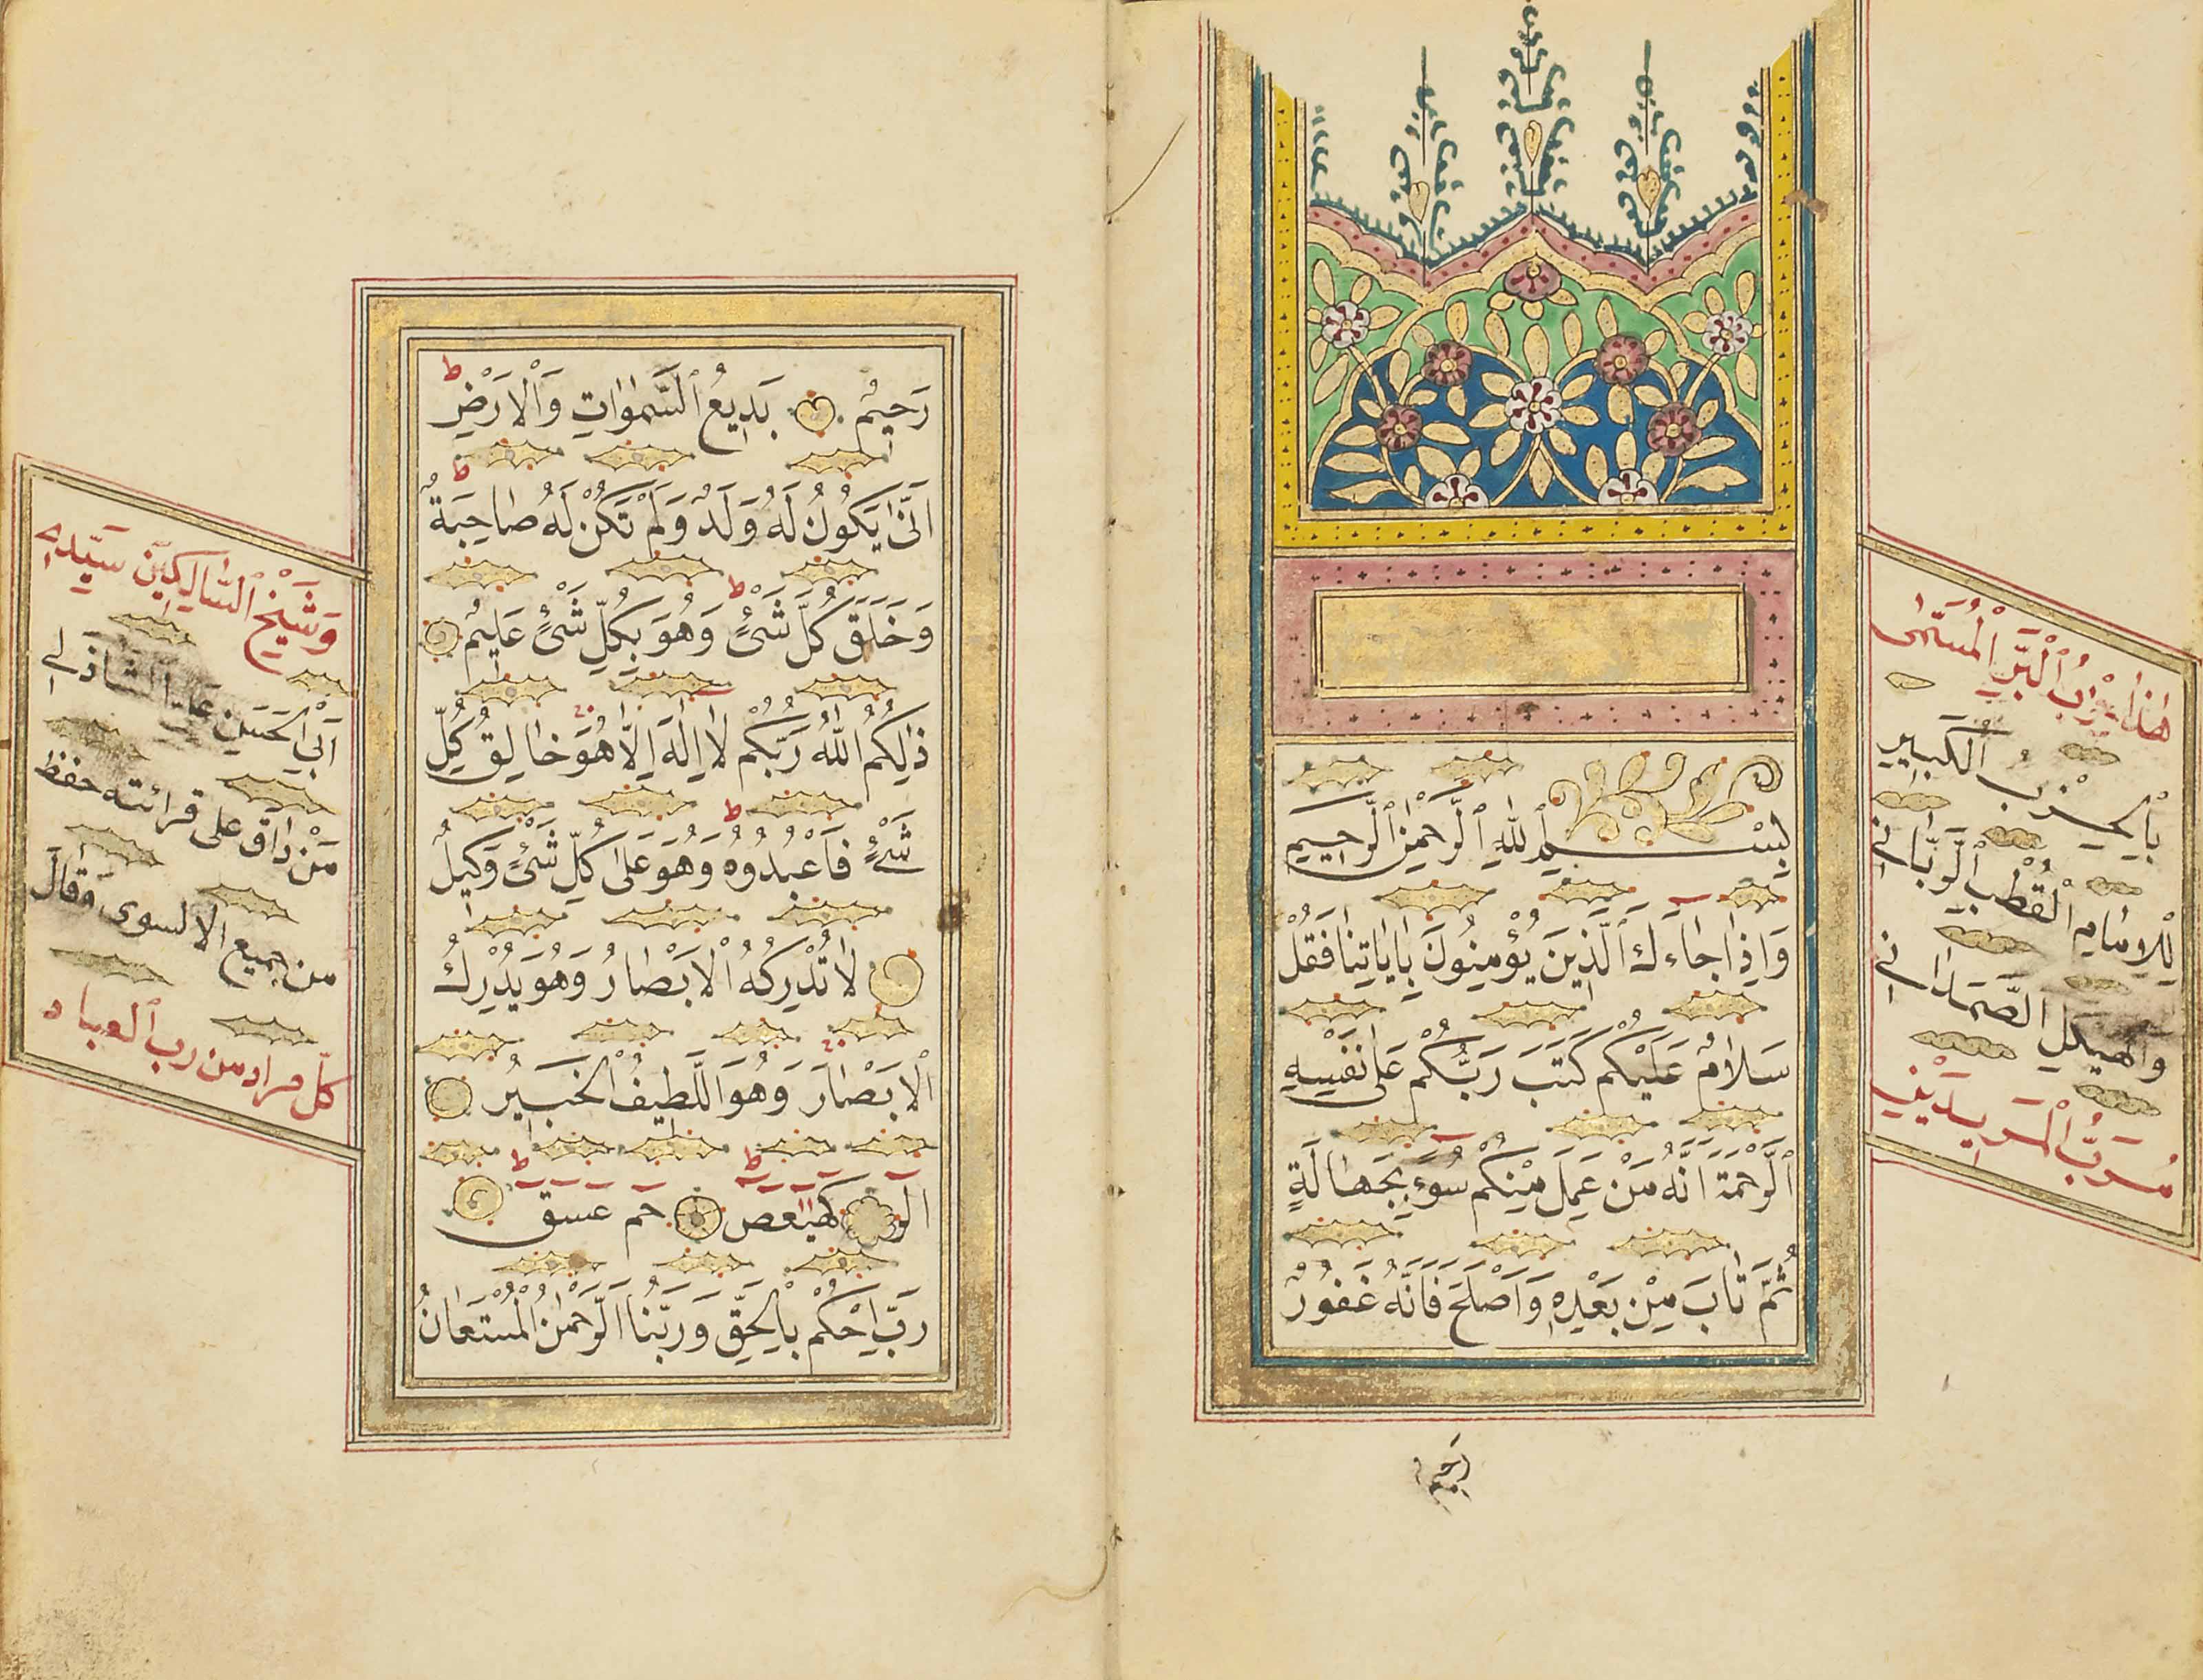 هٰذَا حِزْبُ ٱلْبَرِّ الْمُسَمّٰى
بِٱلْحِزْبِ الْكَبِيرِ
لِلْاِمَامِ الْقُطْبِ الرَّبَّانِي
وَالْهَيْكَلِ الصَّمَدَانِي
مُرَبِّ الْمُرِيدِينَ
بِسْمِ ٱللّٰهِ ٱلرَّحْمٰنِ ٱلرَّحِيمِ
وَاِذَا جَاءَكَ ٱلَّذِينَ يُؤْمِنُونَ بِاٰيَاتِنَا فَقُلْ
سَلَامٌ عَلَيْكُمْ كَتَبَ رَبُّكُمْ عَلٰى نَفْسِهِ
ٱلرَّحْمَةَ اَنَّهُ مَنْ عَمِلَ مِنْكُمْ سُوءً بِجَهَالَةٍ
ثُمَّ تَابَ مِنْ بَعْدِهِ وَاَصْلَحَ فَاَنَّهُ غَفُورٌ
رَحِيمٌ
رَحِيمٌ بَدِيعُ ٱلسَّمٰوَاتِ وَٱلْاَرْضِ ط
اَنّٰى يَكُونُ لَهُ وَلَدٌ وَلَمْ تَكُنْ لَهُ صَاحِبَةٌ ط
وَخَلَقَ كُلَّ شَيْءٍ ط وَهُوَ بِكُلِّ شَيْءٍ عَلِيمٌ
ذٰلِكُمُ اللّٰهُ رَبُّكُمْ لَا اِلٰهَ اِلَّا هُوَ خَالِقُ كُلِّ
شَيْءٍ فَاعْبُدُوهُ ط وَهُوَ عَلٰى كُلِّ شَيْءٍ وَكِيلٌ
لَا تُدْرِكُهُ الْاَبْصَارُ وَهُوَ يُدْرِكُ
الْاَبْصَارَ وَهُوَ اللَّطِيفُ الْخَبِيرُ
الر كهيعص ط حم عسق ط
رَبِّ احْكُمْ بِالْحَقِّ وَرَبُّنَا الرَّحْمٰنُ الْمُسْتَعَانُ
وَشَيْخِ ٱلسَّالِكِينَ سَيِّدِي
اَبِي الْحَسَنِ عَلِي الشَّاذَلِي
مَنْ دَاقَ عَلَى قرائته حفظ
من جميع الالسوى وَقَالَ
كلّ مراد من رب العباد